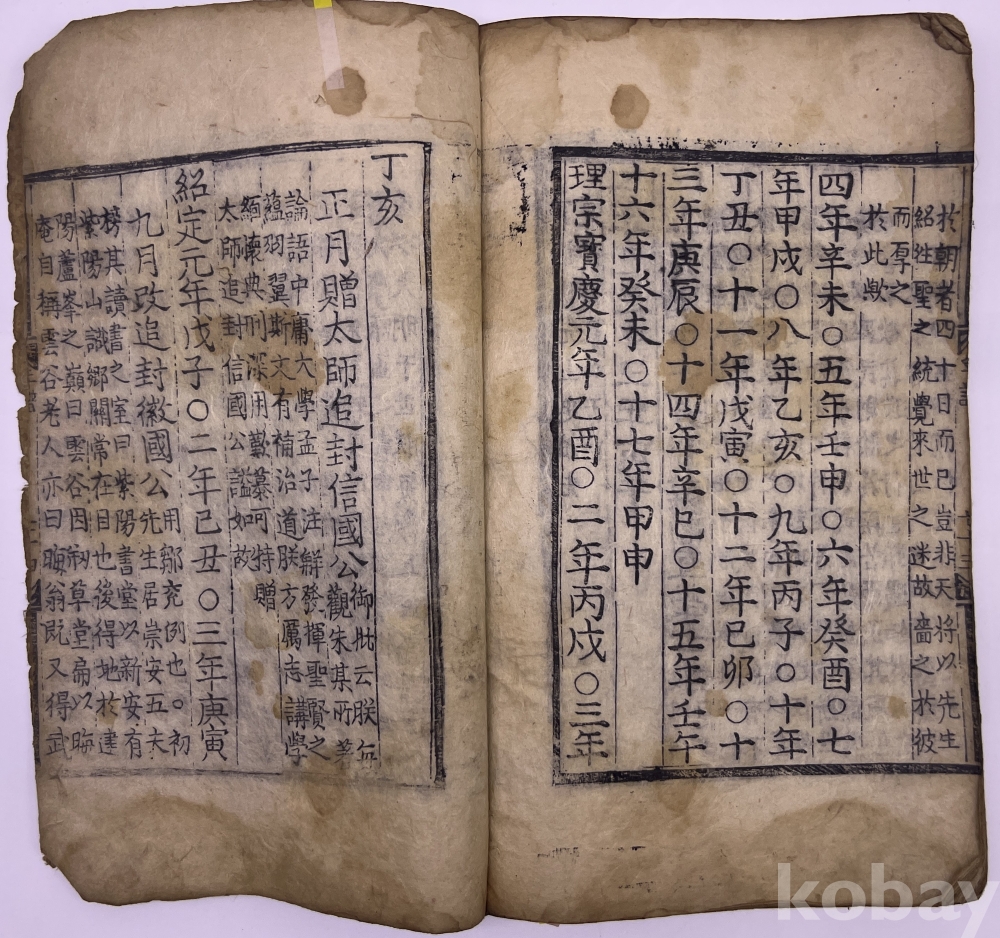 於朝者四十日而已豈非天將以先生
紹往聖之統覺來世之迷故嗇之於彼
而厚之
於此歟
四年辛未○五年壬申○六年癸酉○七
年甲戌○八年乙亥○九年丙子○十年
丁丑○十一年戊寅○十二年己卯○十
三年庚辰○十四年辛巳○十五年壬午
十六年癸未○十七年甲申
理宗寶慶元年乙酉○二年丙戌○三年
丁亥
正月贈太師追封信國公御批云朕每
觀朱某所著
論語中庸大學孟子注解發揮聖賢之
蘊羽翼斯文有補治道朕方厲志講學
緬懷典刑深用歎慕可特贈
太師追封信國公謚如故
紹定元年戊子○二年己丑○三年庚寅
九月改追封徽國公用鄒兗例也○初
先生居崇安五夫
牓其讀書之室曰紫陽書堂以新安有
紫陽山識鄉關常在目也後得地於建
陽蘆峯之巔曰雲谷因剏草堂扁以晦
庵自稱雲谷老人亦曰晦翁既又得武
kobay